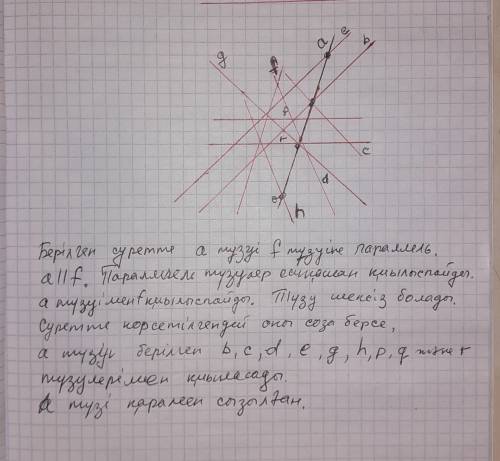 g
f
a
e
b
p
r
c
d
e
h
Берілген суретте a түзуі f түзуіне параллель.
a||f. Параллель түзулер ешқашан қиылыспайды.
a түзуімен f қиылыспайды. Түзу шексіз болады.
Суретте көрсетілгендей оны соза берсе,
a түзуі берілген b, c, d, e, g, h, p, q және r
түзулерімен қиылысады.
a түзі қарамен сызылған.